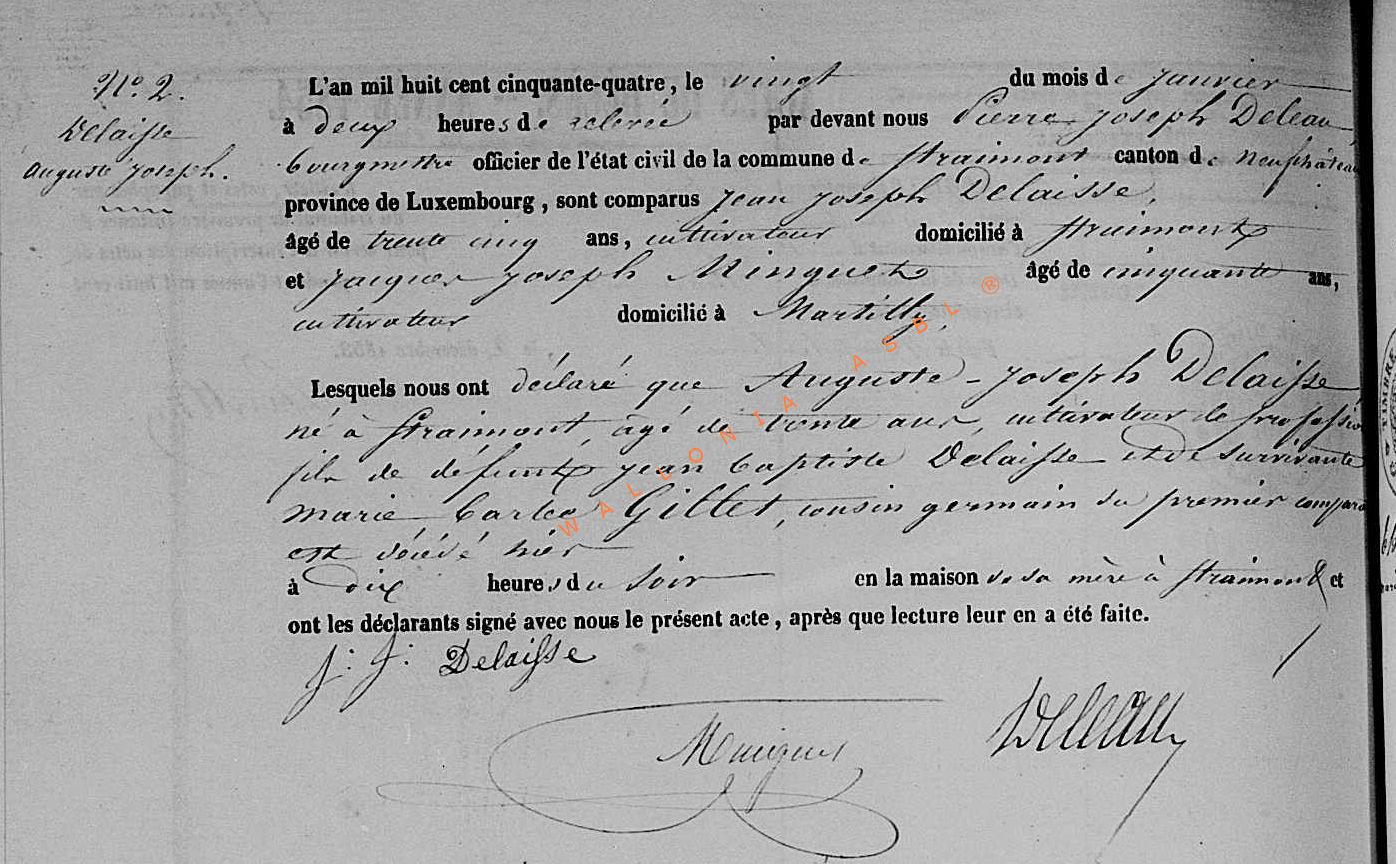 N°. 2.
Delaisse
Auguste Joseph.
L'an mil huit cent cinquante-quatre, le vingt du mois de Janvier
à deux heures de relevée par devant nous Pierre Joseph Deleau
bourgmestre officier de l'état civil de la commune de Straimont canton de Neufchâteau
province de Luxembourg, sont comparus Jean Joseph Delaisse,
âgé de trente cinq ans, cultivateur domicilié à Straimont
et Jacques Joseph Minguet âgé de cinquante ans,
cultivateur domicilié à Martilly,
Lesquels nous ont déclaré que Auguste-Joseph Delaisse
né à Straimont, âgé de trente ans, cultivateur de professio
fils de défunt Jean Baptiste Delaisse et de survivante
Marie Barbe Gillet, cousin germain du premier compara
est décédé hier
à dix heures du soir en la maison de sa mère à Straimont et
ont les déclarants signé avec nous le présent acte, après que lecture leur en a été faite.
J: J: Delaisse
Minguet
Deleau
WALLONIA ASBL ®